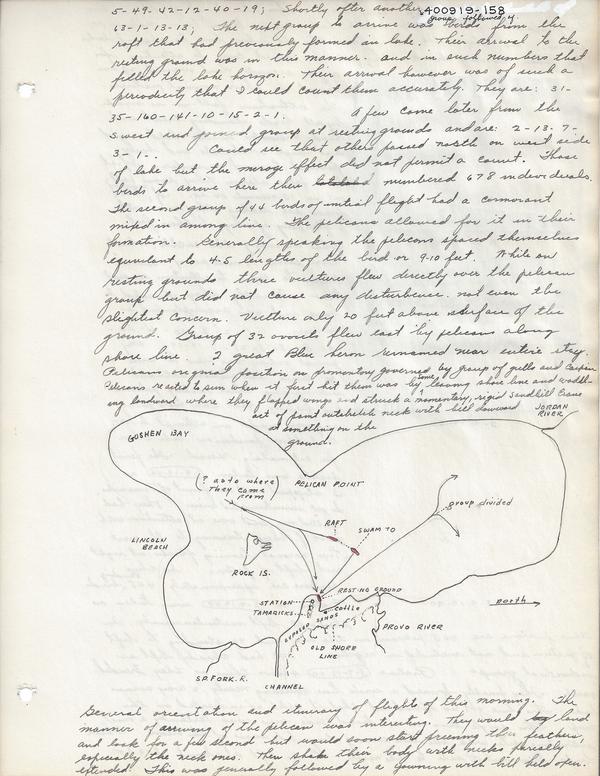 400919-158
5-49-42-12-40-19; Shortly after another group followed of
63-1-13-13; The next group to arrive was birds from the
raft that had previously formed in lake. Their arrival to the
resting ground was in this manner. and in such numbers that
filled the lake horizon. Their arrival however was of such a
periodicity that I could count them accurately. They are: 31-
35-160-141-10-15-2-1. A few came later from the
s.west and joined group at resting grounds and are: 2-13-7-
3-1-. Could see that others passed north on west side
of lake but the mirage effect did not permit a count. Those
birds to arrive here then numbered 678 individuals.
The second group of 44 birds of initial flight had a cormorant
mixed in among line. The pelicans allowed for it in their
formation. Generally speaking the pelicans spaced themselves
equivalent to 4-5 lengths of the bird or 9-10 feet. While on
resting grounds three vultures flew directly over the pelican
group but did not cause any disturbence. not even the
slightest concern. Vulture only 20 feet above surface of the
ground. Group of 32 avocets flew east by pelicans along
shore line. 2 great Blue heron remained near entire stay.
Pelicans original position on promontory governed by group of gulls and Caspian
Pelicans reacted to sun when it first hit them was by some leaving shore line and waddl-
ing landward where they flapped wings and struck a momentary, rigid Sandhill Crane
act of point outstretch neck with bill downward
at something on the
ground.
JORDAN RIVER
GOSHEN BAY
(? as to where they came from)
PELICAN POINT
group divided
RAFT
SWAM TO
LINCOLN BEACH
ROCK IS.
RESTING GROUND
STATION
TAMARICKS
cattle
EXPOSED SANDS
north
OLD SHORE LINE
PROVO RIVER
SP. FORK. R.
CHANNEL
General orientation and itinerary of flights of this morning. The
manner of arriving of the pelican was interesting. They would land
and look for a few second but would soon start preening their feathers,
especially the neck ones. Then shake their body with necks partially
extended. This was generally followed by a yawning with bill held open.